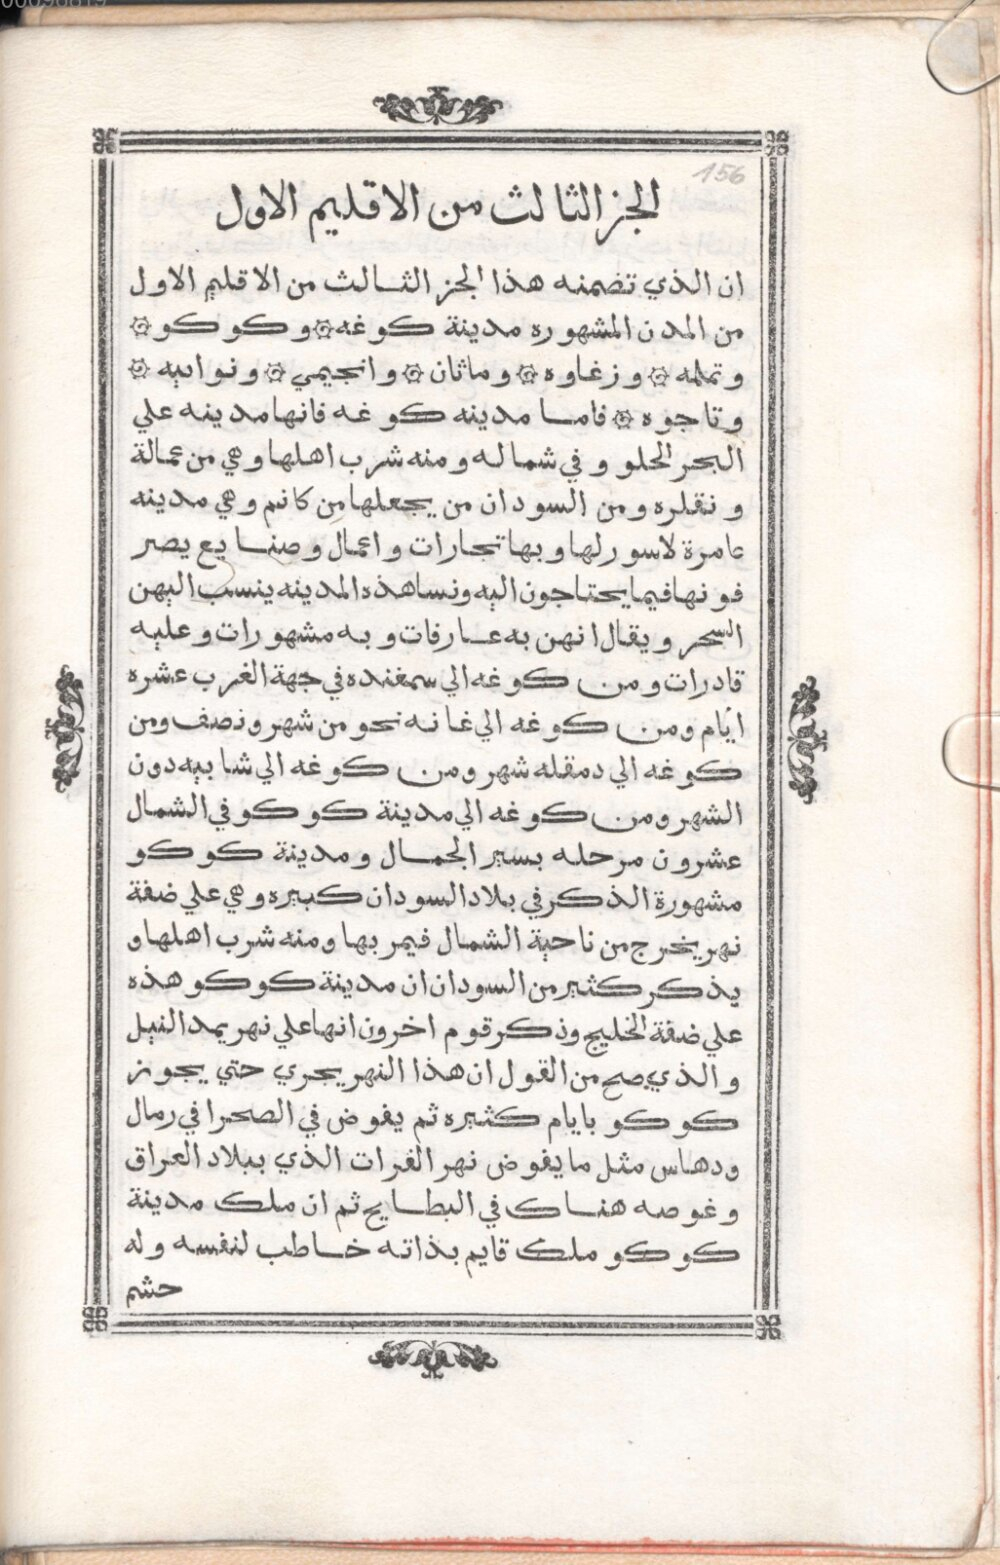 00098819
156
الجز الثالث من الاقليم الاول
ان الذي تضمنه هذا الجز الثالث من الاقليم الاول
من المدن المشهوره مدينة كوغه وكوكو
وتملمه وزغاوه ومانان وانجيمي ونوابيه
وتاجوه فاما مدينه كوغه فانها مدينه علي
البحر الحلو وفي شماله ومنه شرب اهلها وهي من عمالة
ونقاره ومن السودان من يجعلها من كانم وهي مدينه
عامرة لاسور لها وبها تجارات واعمال وصنايع يصر
فونها فيما يحتاجون اليه ونسا هذه المدينه ينسب اليهن
السحر ويقال انهن به عارفات وبه مشهورات وعليه
قادرات ومن كوغه الي سمغنده في جهة الغرب عشره
ايام ومن كوغه الي غانه نحو من شهر ونصف ومن
كوغه الي دمقله شهر ومن كوغه الي شابيه دون
الشهر ومن كوغه الي مدينة كوكو في الشمال
عشرون مرحله بسير الجمال ومدينة كوكو
مشهورة الذكر في بلاد السودان كبيره وهي علي ضفة
نهر يخرج من ناحية الشمال فيمر بها ومنه شرب اهلها و
يذكر كثير من السودان ان مدينة كوكو هذه
علي ضفة الخليج وذكر قوم اخرون انها علي نهر يمد النيل
والذي صح من القول ان هذا النهر يجري حتي يجوز
كوكو بايام كثيره ثم يغوض في الصحرا في رمال
ودهاس مثل ما يغوض نهر الفرات الذي ببلاد العراق
وغوصه هناك في البطايح ثم ان ملك مدينة
كوكو ملك قايم بذاته خاطب لنفسه وله
حشم